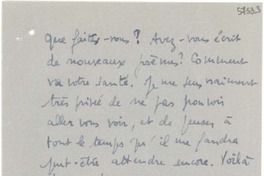 57533
Que faites-vous? Avez-vous écrit
de nouveaux poèmes? Comment
va votre santé. Je me sens vraiment
très privé de ne pas pouvoir
aller vous voir, et de penser à
tout le temps qu'il me faudra
peut-être attendre encore. Voilà